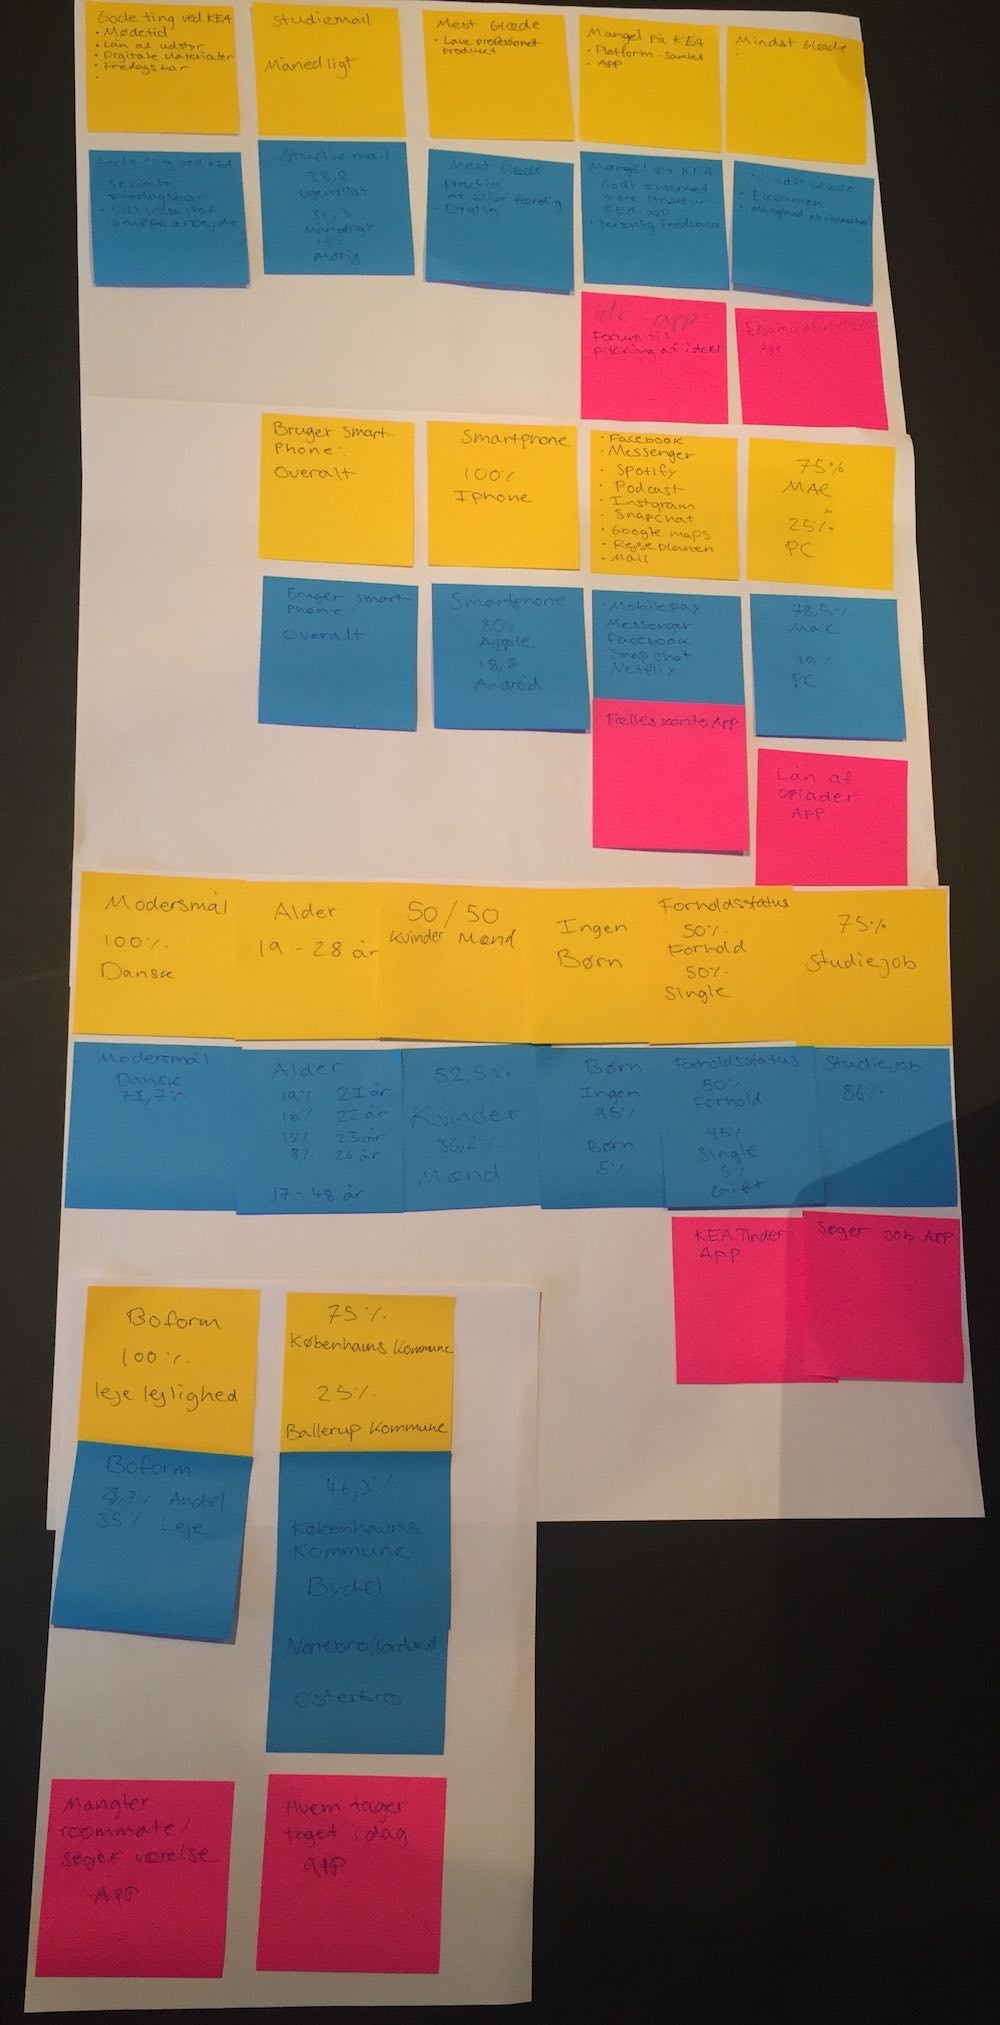 Gode ting ved KEA
• Mødetid
• Lån af udstyr
• Digitale Materialer
• Fredagsbar
Studiemail
Månedligt
Mest Glæde
• Lave professionelt
produkt
Mangel på KEA
• Platform - samlet
• App
Mindst Glæde
Gode ting ved KEA
• Sociale
Fredagsbar
Studiemail
38,8
Ugentligt
Månedligt
15%
Aldrig
Mest Glæde
At blive færdig
Mangel på KEA
mere struktur
KEA app
• Personlig feedback
Mindst Glæde
• Eksamen
app
Forum til
pitching af ideer
App
Bruger Smart-
Phone:
Overalt
Smartphone
100%
Iphone
• Facebook
• Messenger
• Spotify
• Podcast
• Instgram
• Snapchat
• Google maps
• Rejseplanen
• Mail
75%
MAC
25%
PC
Bruger smart-
Phone:
Overalt
Smartphone
80%
Apple
18,8
Android
• Mobilepay
Messenger
Facebook
Snapchat
Netflix
78,5%
Mac
19%
PC
Fælles konto App
Lån af
oplader
APP
Modersmål
100%
Dansk
Alder
19 - 28 år
50 / 50
Kvinder Mænd
Ingen
Børn
Forholdsstatus
50%
Forhold
50%
Single
75%
Studiejob
Modersmål
Dansk
71,7%
Alder
19% 21 år
16% 22 år
15% 23 år
8% 24 år
17 - 48 år
52,5%
Kvinder
36,2%
Mænd
Børn
Ingen
95%
Børn
5%
Forholdsstatus
50%
Forhold
45%
Single
5%
Gift
Studiejob
86%
KEA Tinder
App
Søger job APP
Boform
100%
leje lejlighed
75%
Københavns Kommune
25%
Ballerup Kommune
Boform
Andel
35% Leje
46,3%
Københavns
Kommune
Bydel
Nørrebro/Nordvest
Østerbro
Mangler
roommate/
søger værelse
APP
Hvem tager
toget idag
app